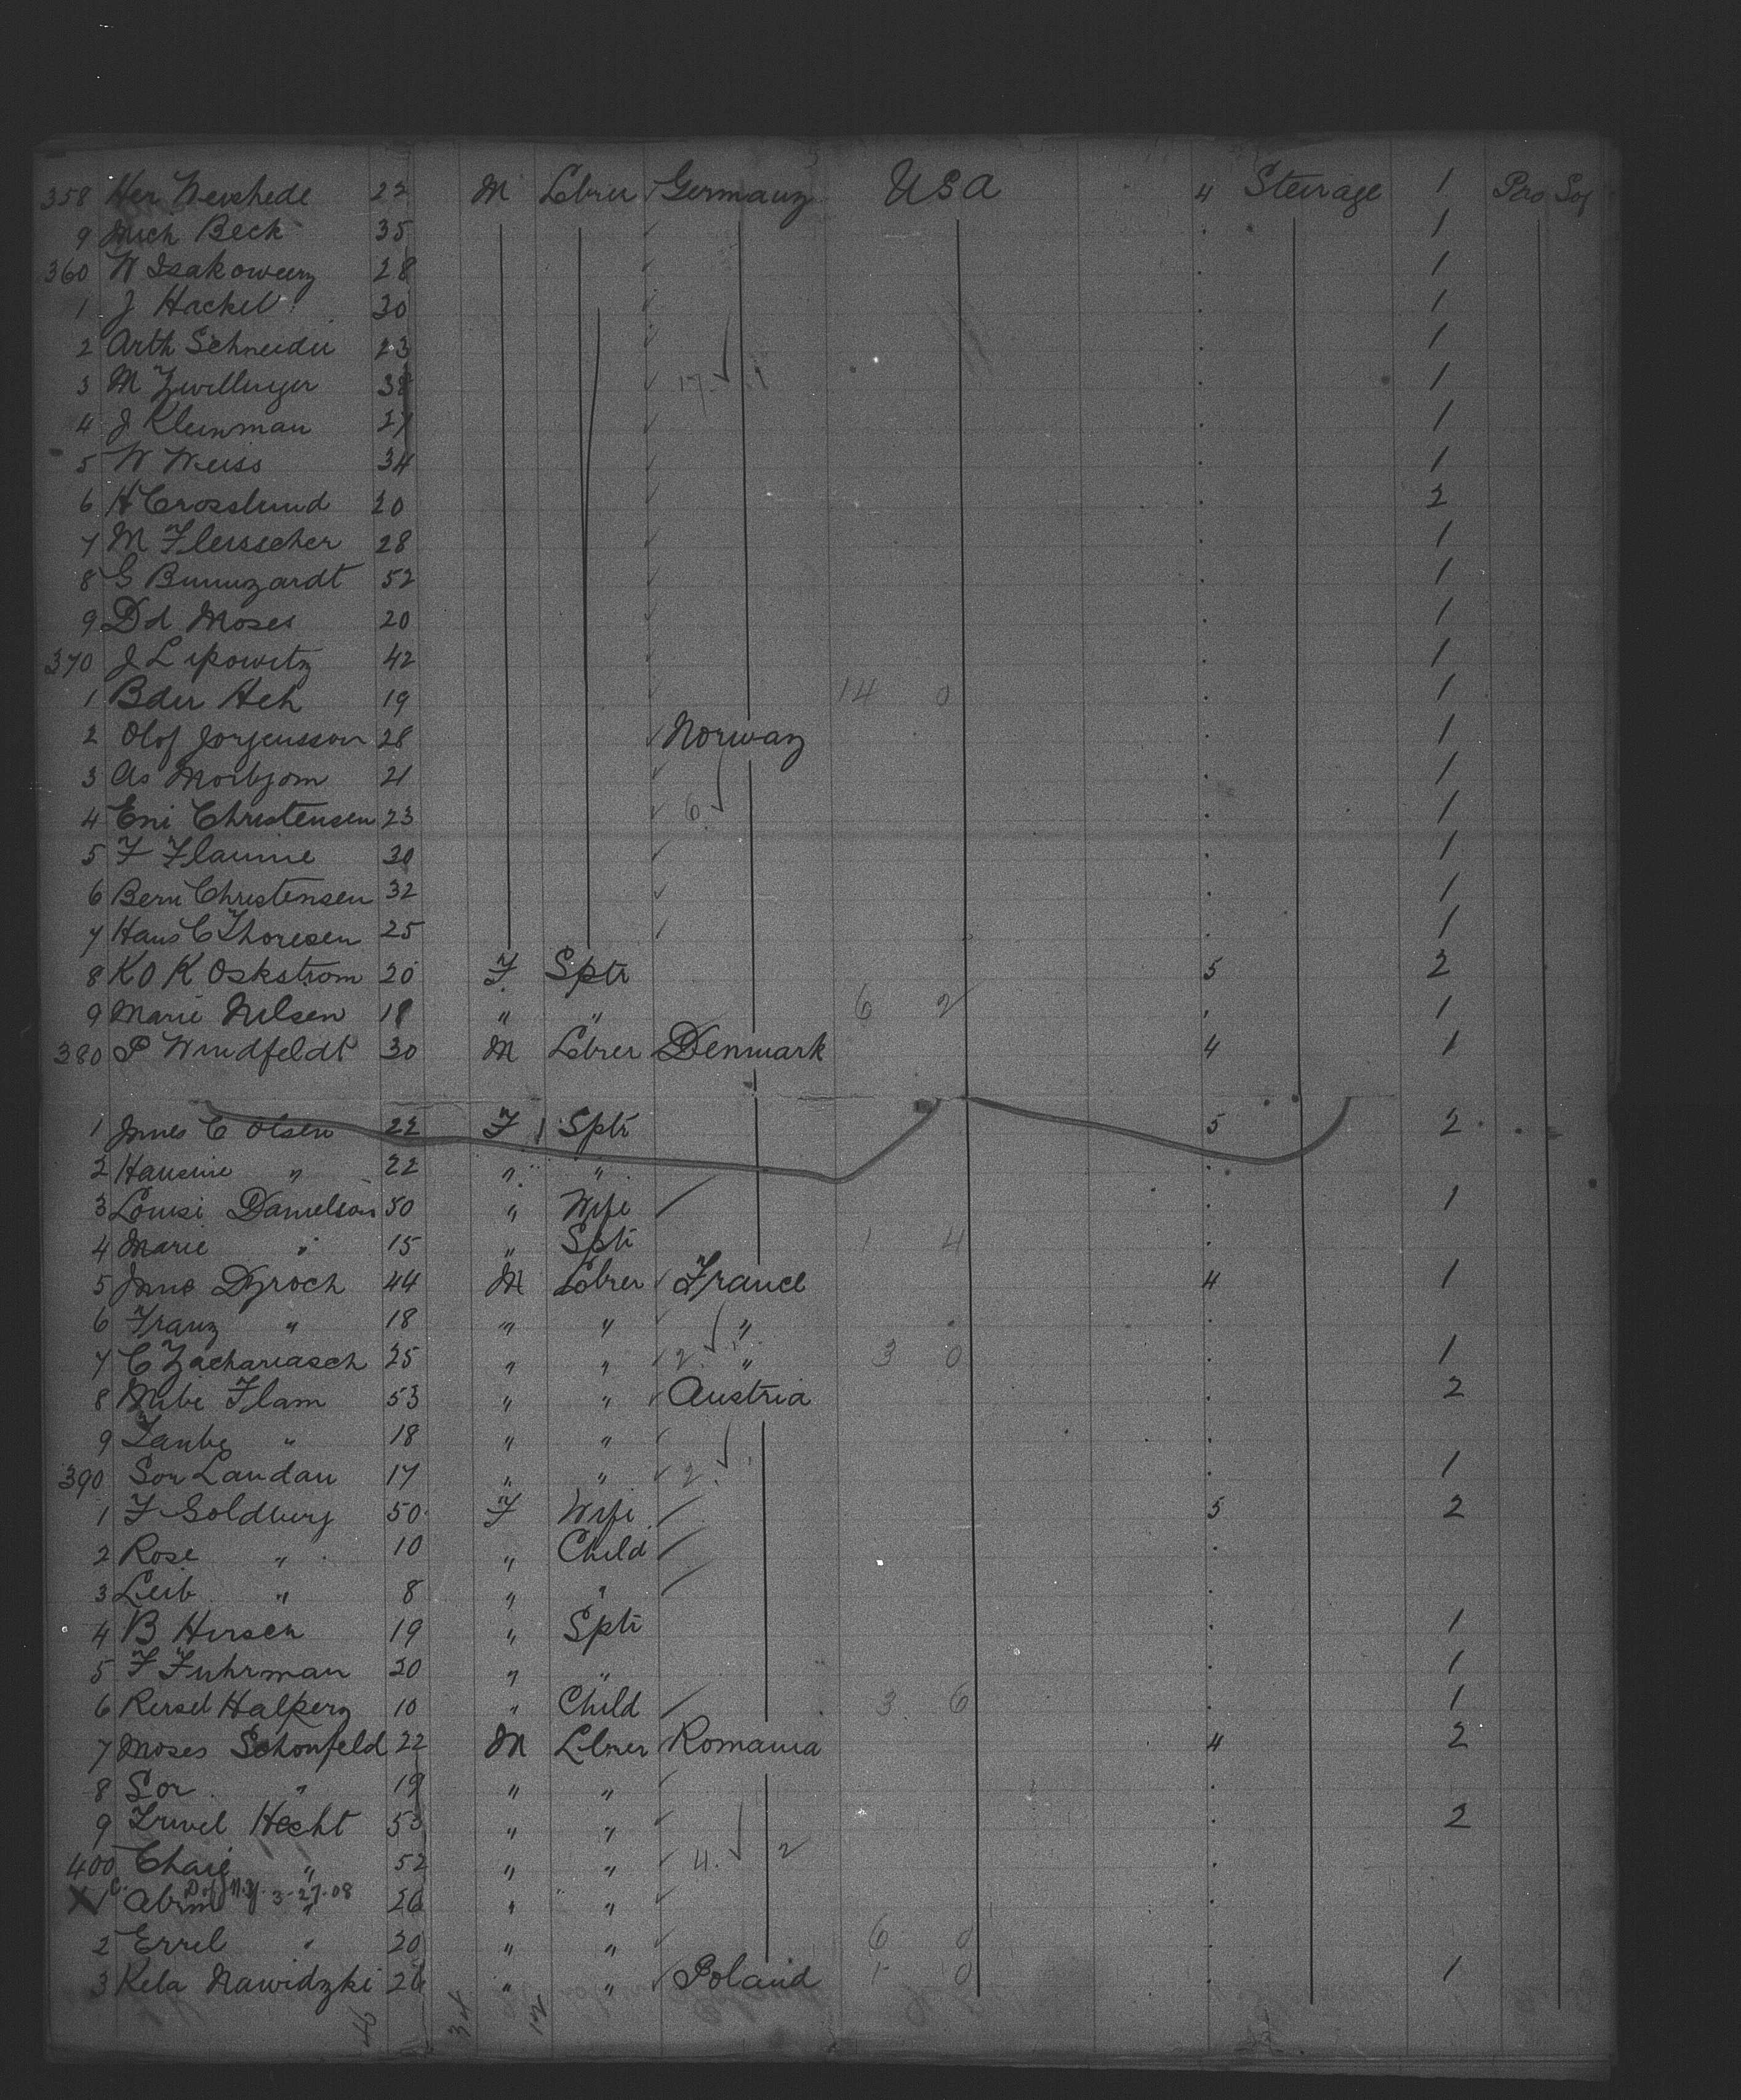 358 Her Weishede 22 M Lbrer Germany USA 4 Steirage 1 Pro Soj
9 Mich Beck 35 1
360 W Isakoweiz 28 1
1 J Hackel 30 1
2 Arth Schneider 23 1
3 M Zwillinger 38 17 1
4 J Kleinman 27 1
5 W Weiss 34 1
6 H Crosslund 20 2
7 M Fleisscher 28 1
8 G Bunnzardt 52 1
9 Dd Moses 20 1
370 J Lipowitz 42 1
1 Bder Heh 19 14 0 1
2 Olof Jorjensson 28 Norway 1
3 As Morbjorn 21 1
4 Eni Christensen 23 6 1
5 F Flaunie 30 1
6 Bern Christensen 32 1
7 Hans C Thoresen 25 1
8 K O K Oskstrom 20 F Sptr 5 2
9 Marie Nilsen 18 " " 6 2 1
380 P Windfeldt 30 M Lbrer Denmark 4 1
1 Jnnes C Olsen 22 F Sptr 5 2
2 Hansine " 22 " "
3 Louisi Danielson 50 " Wife 1
4 Marie " 15 " Sptr 1 4
5 Jnno Dyroch 44 M Lbrer France 4 1
6 Franz " 18 " " "
7 C Zachariasch 25 " " 2 " 3 0 1
8 Mibe Flam 53 " " Austria 2
9 Taube " 18 " "
390 Sor Landau 17 " " 2 1
1 F Goldberg 50 F Wife 5 2
2 Rose " 10 " Child
3 Leib " 8 " "
4 B Hirsch 19 " Sptr 1
5 F Fuhrman 20 " " 1
6 Reisel Halpern 10 " Child 3 6 1
7 Moses Schonfeld 22 M Lbrer Romania 4 2
8 Sor " 19 " "
9 Srwel Hecht 53 " " 2
400 Chaie " 52 " " 4 2
C. D of N.Y. 3-27-08
X 1 Abrm " 26 " "
2 Errel " 20 " " 6 0
3 Kela Nawidzki 26 " " Poland 1 0 1
34 12